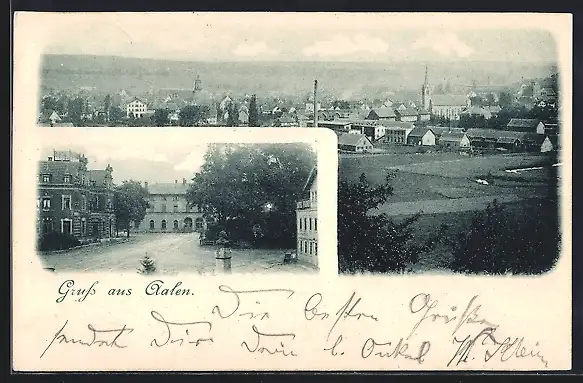 Gruß aus Aalen.
Die besten Grüße
sendet Dir Dein l. Onkel W. Klein